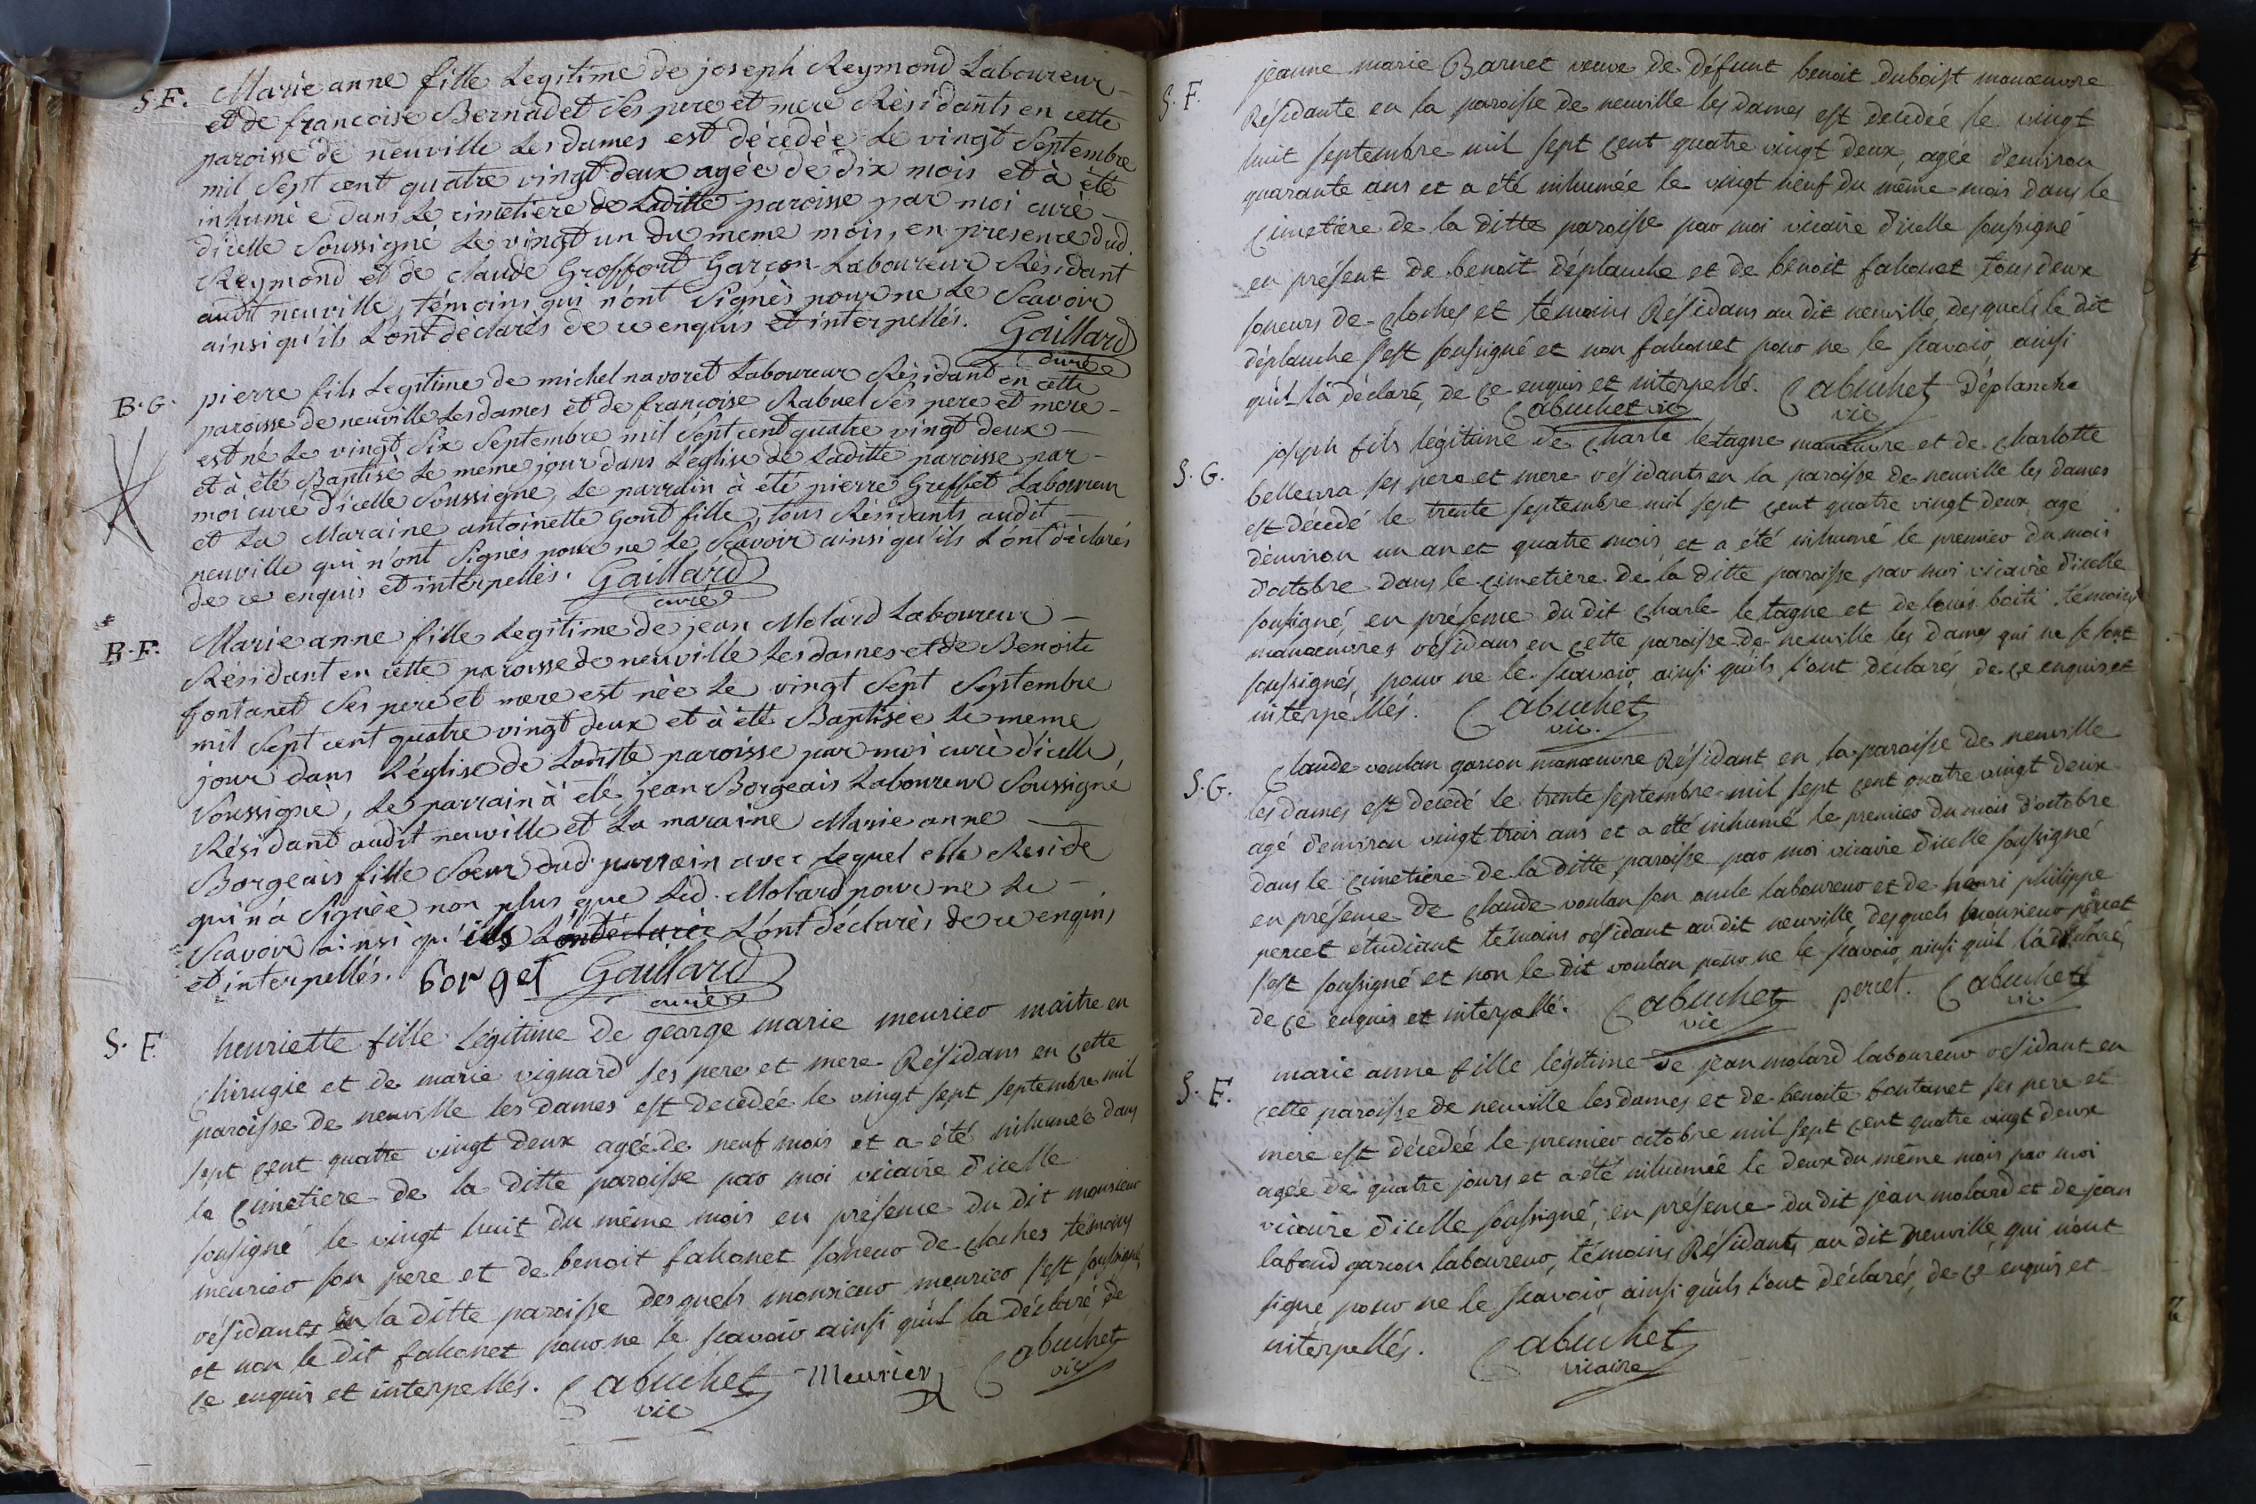 S.F. Marie anne fille Legitime de joseph Reymond Laboureur
et de francoise Bernadet ses pere et mere Résidants en cette
paroisse de neuville Les dames est décedée Le vingt Septembre
mil Sept cent quatre vingt deux agée de dix mois et à été
inhumée dans Le cimetiere de Laditte paroisse par moi curé
dicelle Soussigné Le vingt un du meme mois, en presence dud.
Reymond et de claude Groffort Garçon Laboureur Résidant
audit neuville, témoins qui n'ont Signés pour ne Le Scavoir
ainsi qu'ils L'ont déclarés de ce enquis et interpellés. Gaillard
curé
B.G. pierre fils Legitime de michel navoret Laboureur Résidant en cette
paroisse de neuville Les dames et de françoise Rabuel Ses pere et mere
est né Le vingt Six Septembre mil Sept cent quatre vingt deux
et à été Baptisé Le meme jour dans L'église de Laditte paroisse par
moi curé dicelle Soussigné, Le parrain à été pierre Greffet Laboureur
et La Maraine antoinette Gout fille, tous Résidants audit
neuville qui n'ont Signés pour ne Le Scavoir ainsi qu'ils L'ont déclarés
de ce enquis et interpellés. Gaillard
curé
B.F. Marie anne fille Legitime de jean Molard Laboureur
Résidant en cette paroisse de neuville Les dames et de Benoite
fontanet Ses pere et mere est née Le vingt Sept Septembre
mil Sept cent quatre vingt deux et à été Baptisée Le meme
jour dans L'église de Laditte paroisse par moi curé d'icelle
Soussigné, Le parrain à été jean Borgeais Laboureur Soussigné
Résidant audit neuville et La maraine Marie anne
Borgeais fille Soeur dud. parrain avec Lequel elle Reside
qui n'a Signée non plus que Led. Molard pour ne Le
Scavoir ainsi qu'ils L'ont déclarés de ce enquis
et interpellés. borget Gaillard
curé
S.F. henriette fille Légitime de george marie meurier maitre en
chirugie et de marie vignard ses pere et mere Résidans en cette
paroisse de neuville les dames est decedée le vingt sept septembre mil
sept cent quatre vingt deux agée de neuf mois et a été inhumée dans
le cimetiere de la ditte paroisse par moi vicaire dicelle
sousigné le vingt huit du même mois en présence du dit monsieur
meurier son pere et de benoit fahonet soneur de cloches témoins
résidants en la ditte paroisse desquels monsieur meurier s'est sousigné
et non le dit fahonet pour ne le scavoir ainsi quil la déclaré de
ce enquis et interpellés. Cabuchet Meurier Cabuchet
vic vic
S.F. jeanne marie Barnet veuve de défunt benoit duboist manœuvre
Résidante en la paroisse de neuville les dames est decedée le vingt
huit septembre mil sept cent quatre vingt deux, agée denviron
quarante ans et a été inhumée le vingt neuf du même mois dans le
cimetiere de la ditte paroisse par moi vicaire dicelle sousigné
en présent de benoit déplanche et de benoit fahonet tous deux
soneurs de cloches et temoins Résidans au dit neuville, desquels le dit
déplanche s'est sousigné et non fahonet pour ne le scavoir, ainsi
quil la déclaré, de ce enquis et interpellé. Cabuchet Déplanche
Cabuchet vic vic
S.G. joseph fils légitime de charle letagne manœuvre et de charlotte
ses pere et mere résidants en la paroisse de neuville les dames
est décedé le trente septembre mil sept cent quatre vingt deux agé
denviron un an et quatre mois, et a été inhumé le premier du mois
d'octobre dans le cimetiere de la ditte paroisse par moi vicaire dicelle
sousigné, en présence du dit charle letagne et de louis boiti témoins
manœuvres résidans en cette paroisse de neuville les dames qui ne se sont
sousignés, pour ne le scavoir, ainsi quils l'ont declarés, de ce enquis et
interpéllés. Cabuchet
vic.
S.G. Claude voulan garcon manœuvre Résidant en la paroisse de neuville
les dames est decedé le trente septembre mil sept cent quatre vingt deux
agé denviron vingt trois ans et a été inhumé le premier du mois d'octobre
dans le cimetiere de la ditte paroisse par moi vicaire dicelle sousigné
en présence de claude voulan son oncle laboureur et de henri philippe
percet étudiant témoins résidant au dit neuville, desquels monsieur percet
s'est sousigné et non le dit voulan pour ne le scavoir, ainsi quil la déclaré,
de ce enquis et interpellé. Cabuchet percet. Cabuchet
vic vic
S.F. marie anne fille légitime de jean molard laboureur résidant en
cette paroisse de neuville les dames et de benoite fontanet ses pere et
mere est décedée le premier octobre mil sept cent quatre vingt deux
agée de quatre jours et a été inhumée le deux du même mois par moi
vicaire dicelle sousigné, en présence du dit jean molard et de jean
lafond garcon laboureur, témoins Résidants au dit neuville qui nont
signe pour ne le scavoir, ainsi quils l'ont déclarés, de ce enquis et
intérpellés. Cabuchet
vicaire